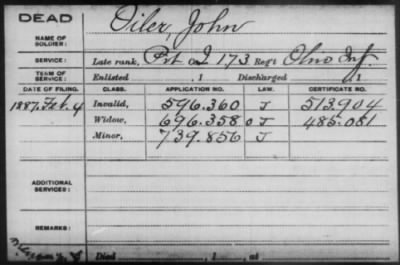 DEAD
NAME OF SOLDIER: Oiler, John
SERVICE: Late rank, Pvt Co I 173 Reg't Ohio Inf.
TERM OF SERVICE: Enlisted , 1 Discharged , 1
DATE OF FILING. CLASS. APPLICATION NO. LAW. CERTIFICATE NO.
1887, Feb. 4 Invalid, 596.360 J 513.904
Widow, 696.358 O J 485.051
Minor, 739.856 J
ADDITIONAL SERVICES:
REMARKS:
Died , 1 , at